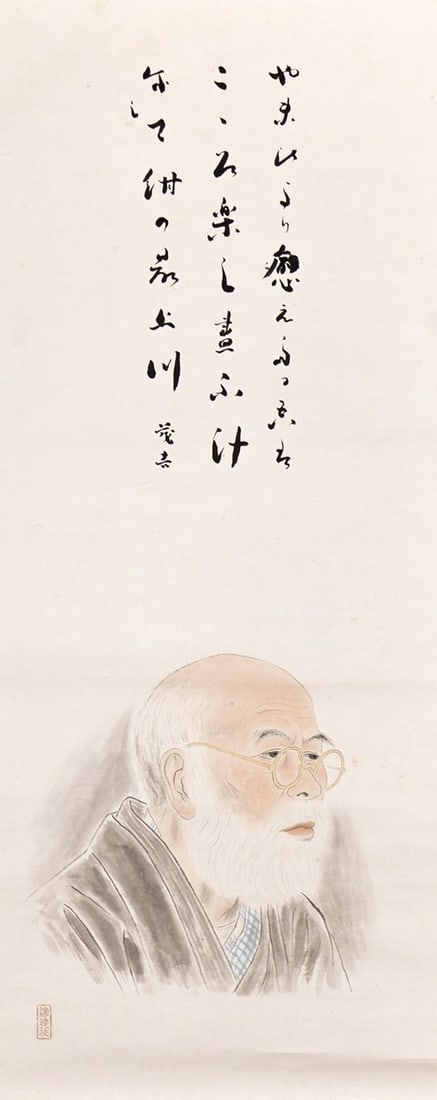 やまひより癒えたる吾は
こゝろ楽し晝ふけ
にして紺の最上川
茂吉